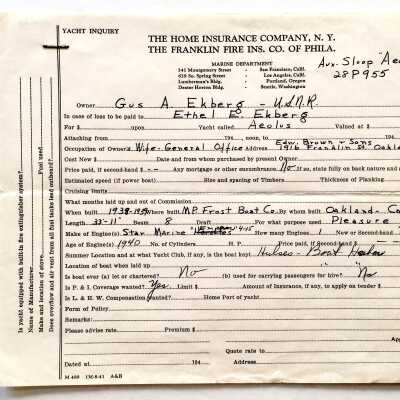 YACHT INQUIRY
THE HOME INSURANCE COMPANY, N. Y.
THE FRANKLIN FIRE INS. CO. OF PHILA.
Aux. Sloop "Aeo
28P955
MARINE DEPARTMENT
341 Montgomery Street - San Francisco, Calif.
610 So. Spring Street - Los Angeles, Calif.
Lumberman's Bldg. - Portland, Oregon
Dexter Horton Bldg. - Seattle, Washington
Owner Gus A. Ekberg - U.S.N.R.
In case of loss to be paid to Ethel E. Ekberg
For $ upon Yacht called Aeolus Valued at $
Attaching from 194 noon, to 194
Edw. Brown & Sons
Occupation of Owner Wife-General Office Address 1916 Franklin St. Oakla
Cost New $ Date and from whom purchased by present Owner
Price paid, if second-hand $ Any mortgage or other encumbrance No If not, state fully and in
Estimated speed (if power boat) Size and spacing of Timbers Thickness of Planking
Cruising limits
What months laid up and out of Commission
When built 1938-1939 Where built M.P. Frost Boat Co. By whom built Oakland-Ca
Length 32-11" Beam 8 Draft For what purpose used Pleasure
Make of Engine(s) Star Marine 4-15 How many Engines 1 New or Second-hand
Age of Engine(s) 1940 No. of Cylinders H. P. Price paid, if Second-hand $
Summer Location and at what Yacht Club, if any, is the boat kept
Location of boat when laid up
Is boat ever (a) let or chartered? No (b) used for carrying passengers for hire? "No
Is P. & I. Coverage wanted? Yes. Limit $ Amount of Insurance, if any, to apply on tender $
Is L. & H. W. Compensation wanted? Home Port of yacht
Form of Policy
Remarks:
Please advise rate. Premium $
App
Quote rate to
Dated at 194 Address
M 409 130-8-41 A&B
Is yacht equipped with built-in fire extinguisher system?
Name of Manufacturer
Make and location of stove Fuel used
Does overflow and air vent from all fuel tanks lead outboard?